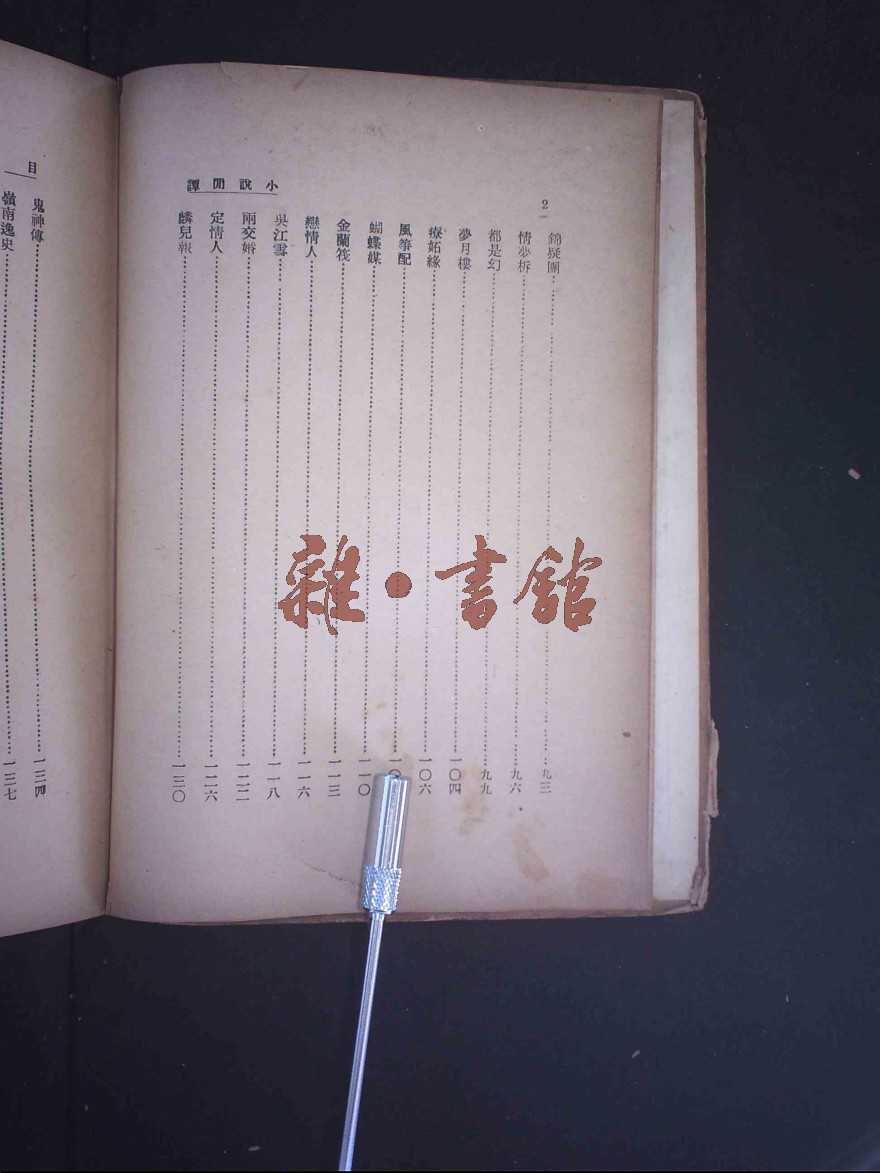 2
小說閒譚
錦疑團……九三
情夢柝……九六
都是幻……九九
夢月樓……一〇四
療妬緣……一〇六
風箏配……一〇
蝴蝶媒……一一〇
金蘭筏……一一三
戀情人……一一六
吳江雪……一一八
兩交婚……一二二
定情人……一二六
麟兒報……一三〇
目
鬼神傳……一三四
嶺南逸史……一三七
雜·書館